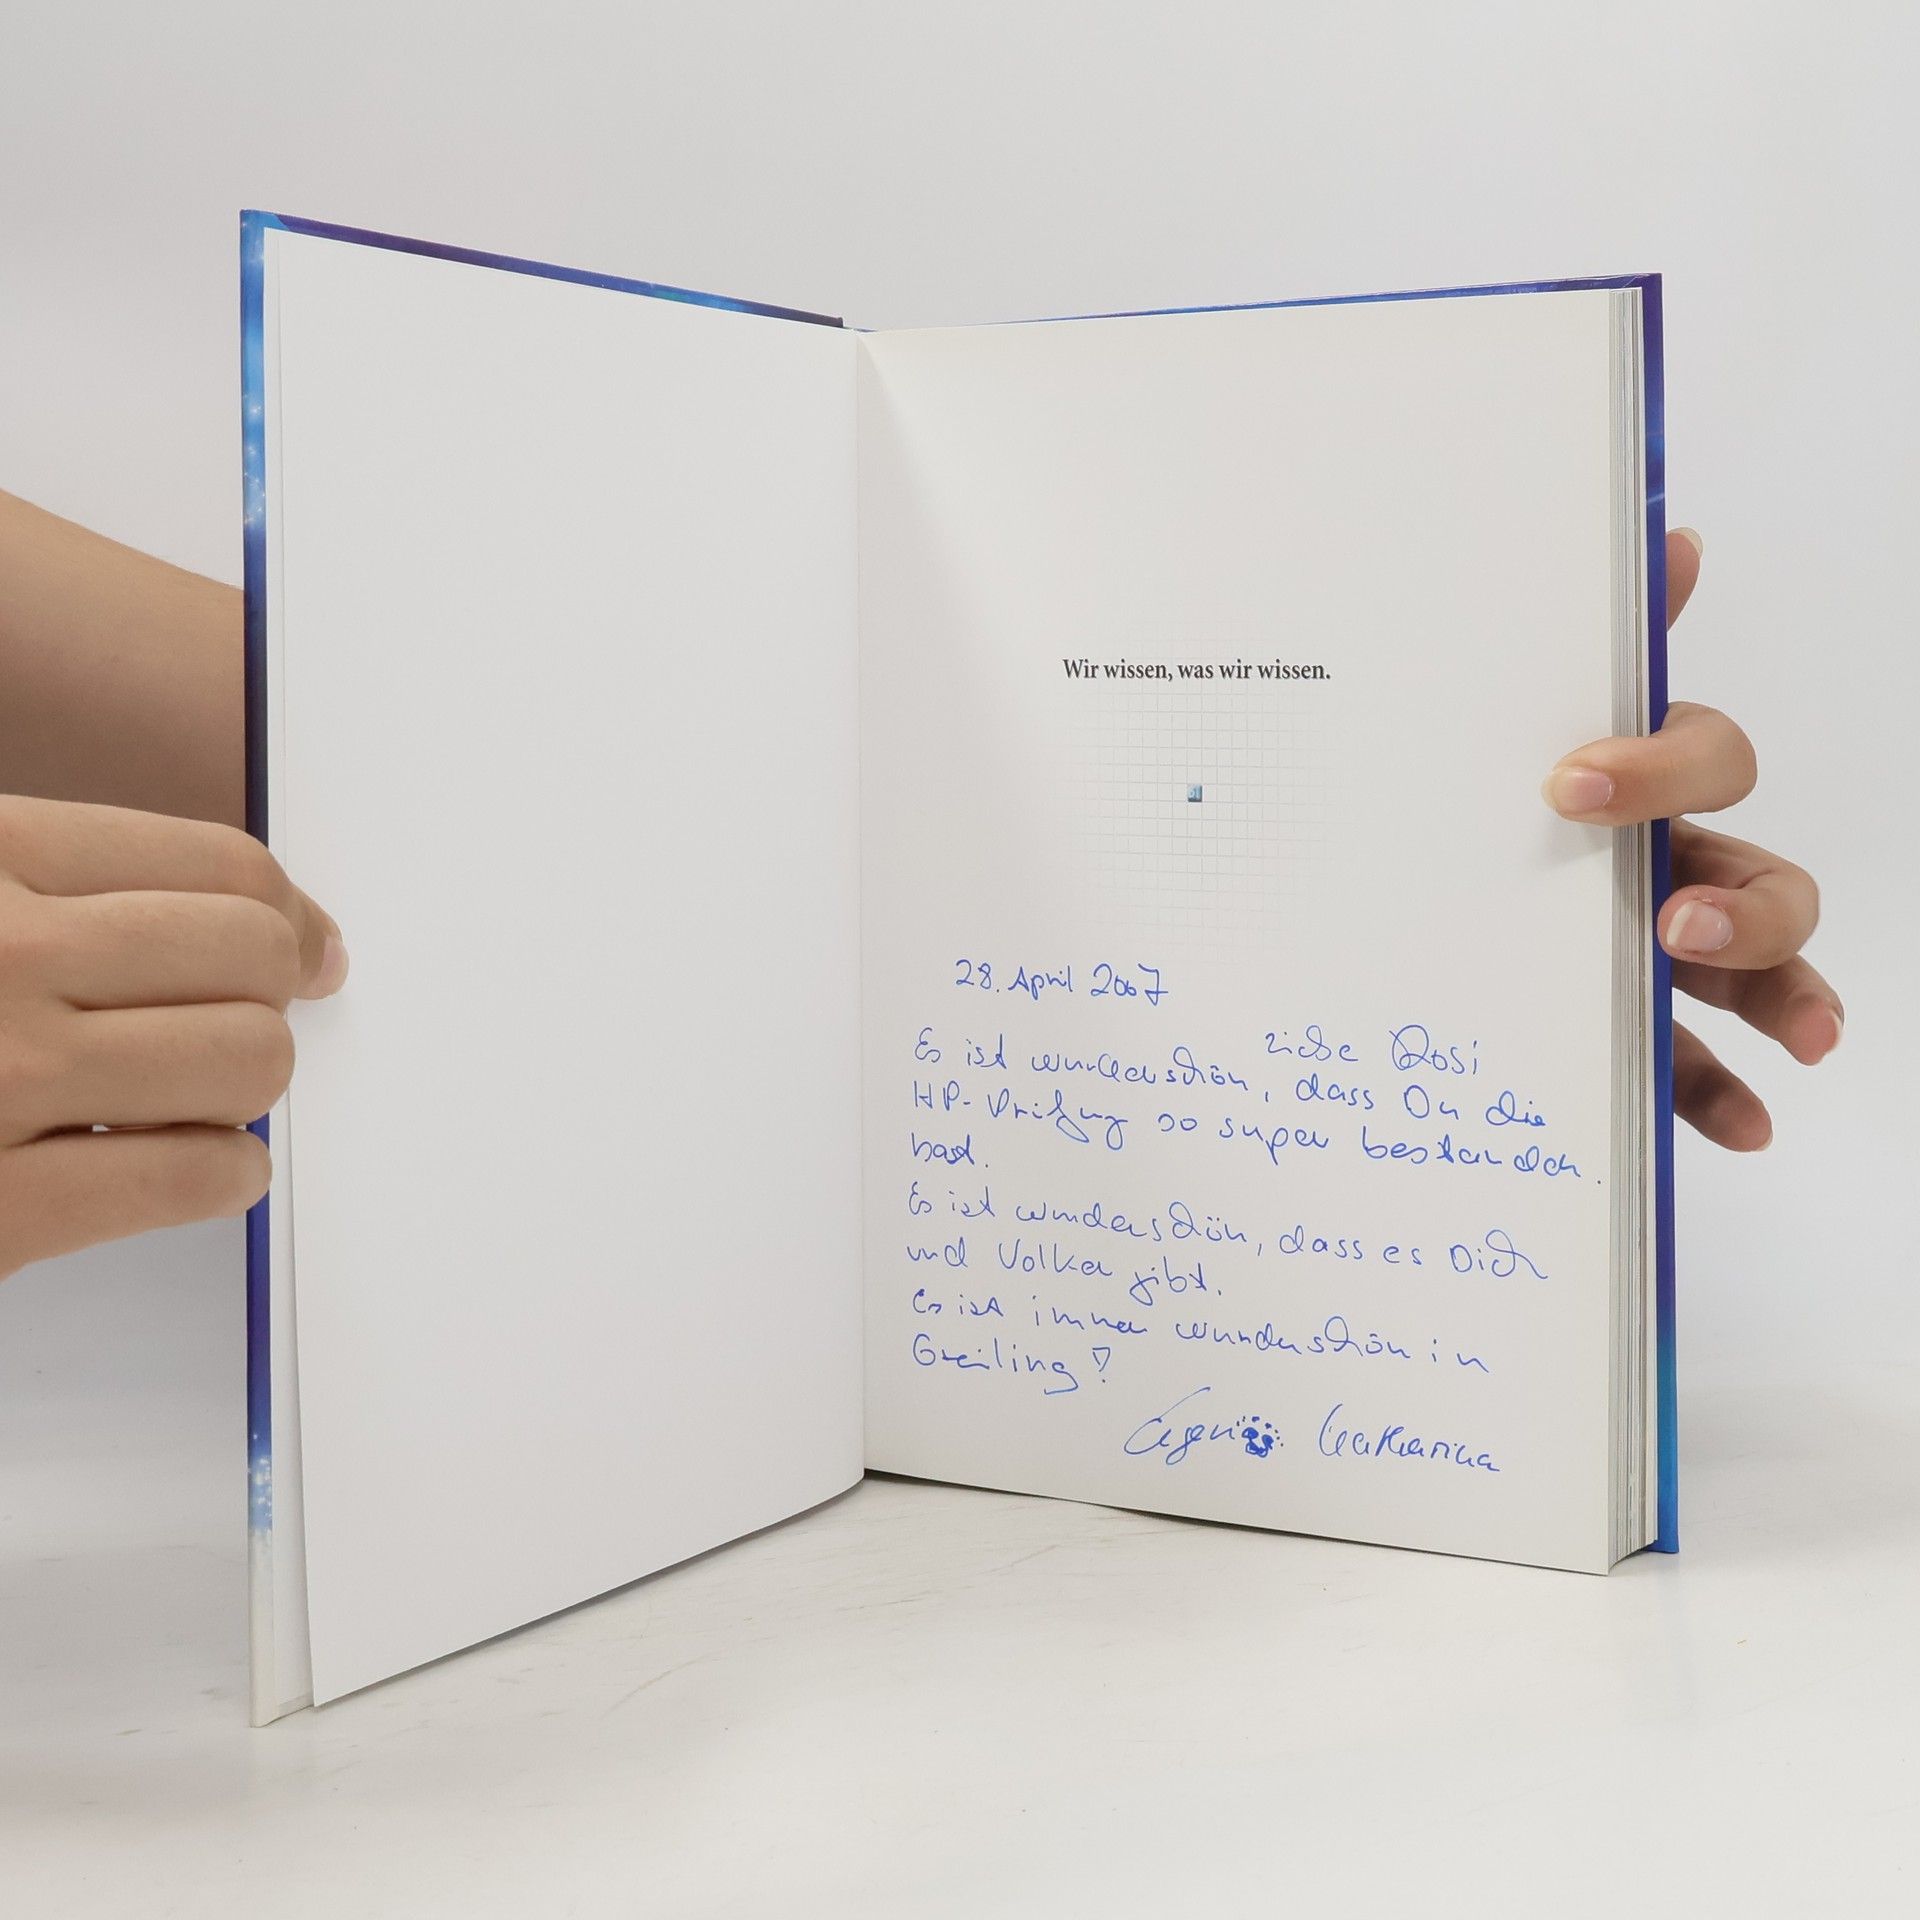 Wir wissen, was wir wissen.
28. April 2007
Liebe Rosi
Es ist wunderschön, dass Du die
HP-Prüfung so super bestanden.
hast.
Es ist wunderschön, dass es Dich
und Volker gibt.
Es ist immer wunderschön in
Greiling!
Katharina